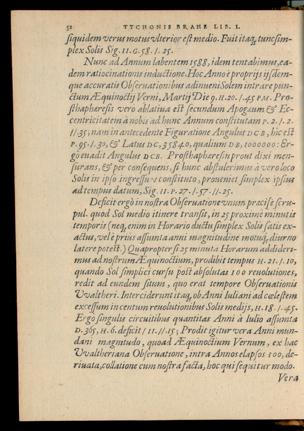 52 TYCHONIS BRAHE LIB. I.
siquidem verus motus ulterior est medio. Fuit itaq; tunc sim-
plex Solis Sig. 11. G. 58. /. 25.
Nunc ad Annum labentem 1588, idem tentabimus, ea-
dem ratiocinationis inductione. Hoc Anno è proprijs ijsdem-
que accuratis Observationibus adinveni Solem intrare pun-
ctum Æquinoctij Verni, Martij Die 9. H. 20. /. 45 P.M. Pro-
sthaphæresis vero ablativa est secundum Apogæum & Ec-
centricitatem à nobis ad hunc Annum constitutam P. 2. /. 2.
/. 35, nam in antecedente Figuratione Angulus DCB, hic est
P. 95. /. 30, & Latus DC, 35840, qualium DB, 1000000: Er-
go evadit Angulus DCB. Prosthaphæresis prout dixi men-
surans, & per consequens, si hunc abstulerimus à vero loco
Solis in ipso ingressu constituto, proveniet simplex ipsius
ad tempus datum, Sig. 11. P. 27. /. 57. //. 25.
Deficit ergò in nostra Observatione unum præcise scru-
pul. quod Sol medio itinere transit, in 25 proximè minutis
temporis (neq; enim in Horario ductu simplex Solis satis ex-
actus, vel è prius assumta anni magnitudine motus, diurno
latere potest.) Quapropter si 25 minuta Horarum addideri-
mus ad nostrum Æquinoctium, prodibit tempus H. 21. /. 10,
quando Sol simplici cursu post absolutas 100 revolutiones,
redit ad eundem situm, quo erat tempore Observationis
Waltheri. Interciderunt itaq; ob Anni Iuliani ad cælestem
excessum in centum revolutionibus Solis medijs, H. 18. /. 45.
Ergo singulis circuitibus quantitas Anni à Iulio assumta
D. 365, H. 6. deficit /. 11. //. 15; Prodit igitur vera Anni mun-
dani magnitudo, quoad Æquinoctium Vernum, ex hac
Waltheriana Observatione, intra Annos elapsos 100, de-
rivata, collatione cum nostra facta, hoc qui sequitur modo.
Vera